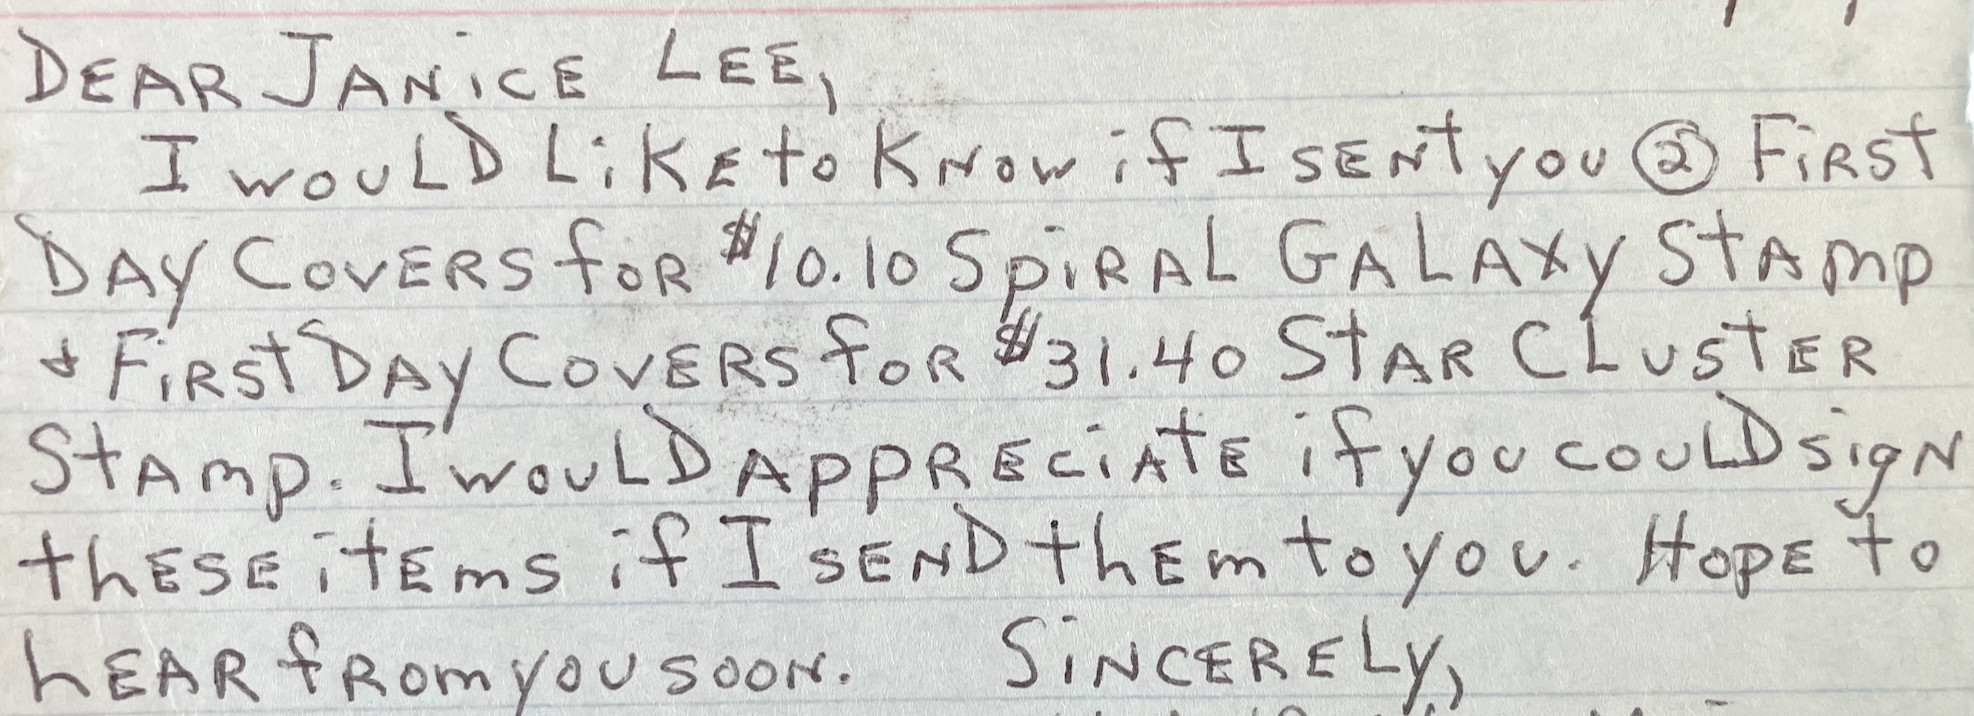 DEAR JANICE LEE,
I WOULD LIKE to KNOW if I SENT you ② FIRST
DAY COVERS foR $10.10 SPIRAL GALAXY StAmp
& FIRSt DAY COVERS foR $31.40 StAR CLUSTER
StAmp. I WOULD APPRECIATE if you COULD sign
thESE itEmS if I SEND thEm to you. HOPE to
hEAR fRom you SOON. SINCERELY,